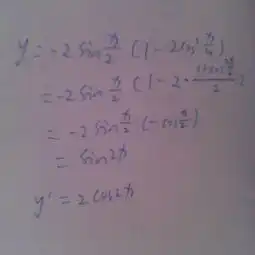 y = -2 sin x/2 (1 - 2cos² x/4)
= -2 sin x/2 (1 - 2 ·
= -2 sin x/2 (-cos x/2)
= sin2x
y' = 2cos2x